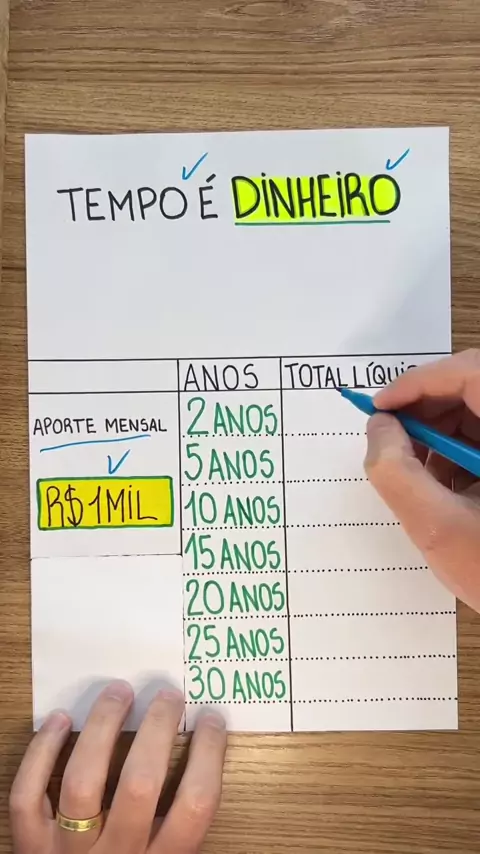 TEMPO É DINHEIRO
ANOS TOTAL
APORTE MENSAL
R$ 1 MIL
2 ANOS
5 ANOS
10 ANOS
15 ANOS
20 ANOS
25 ANOS
30 ANOS